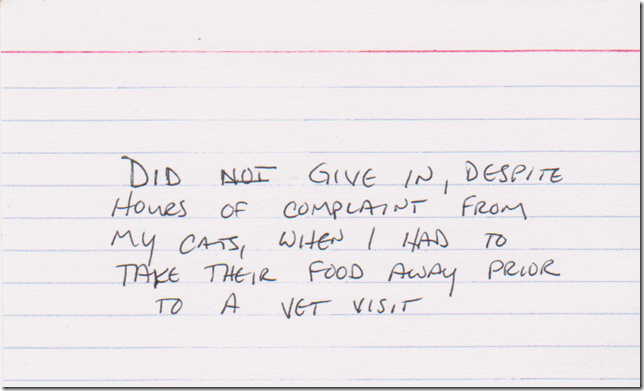 DID NOT GIVE IN, DESPITE
HOURS OF COMPLAINT FROM
MY CATS, WHEN I HAD TO
TAKE THEIR FOOD AWAY PRIOR
TO A VET VISIT